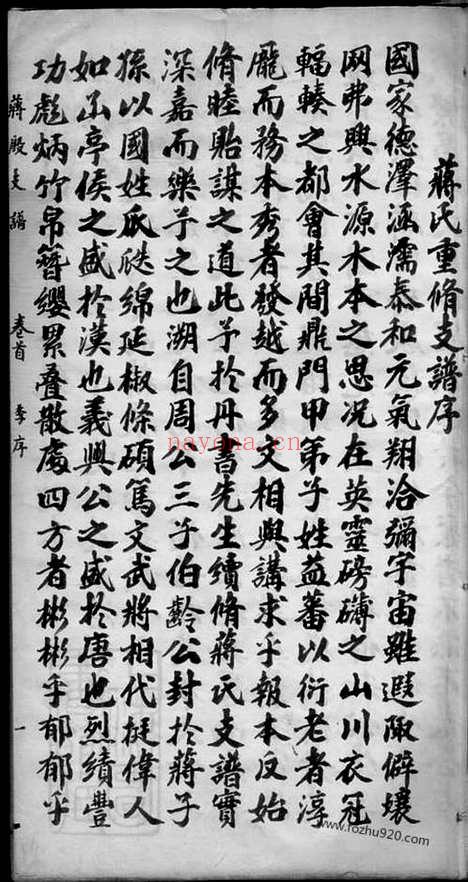 蔣氏重脩支譜序
國家德澤涵濡泰和元氣翔洽彌宇宙雖遐陬僻壤
网弗興水源木本之思况在英靈磅礴之山川衣冠
輻輳之都會其間鼎門甲第子姓益蕃以衍老者淳
龐而務本秀者發越而多文相與講求乎報本反始
脩睦貽謀之道此予於丹書先生續脩蔣氏支譜實
深嘉而樂予之也溯自周公三子伯齡公封於蔣子
孫以國姓瓜瓞綿延椒條碩篤文武將相代挺偉人
如函亭侯之盛於漢也義興公之盛於唐也烈績豐
功彪炳竹帛簪纓累叠散處四方者彬彬乎郁郁乎
蔣殿支譜 卷首 李序 一
nayona.cn
www.fozhu920.com